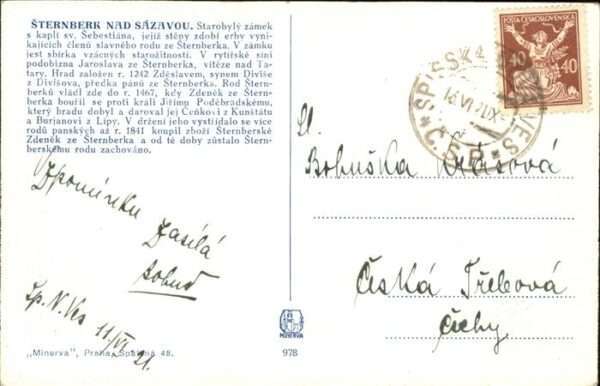 ŠTERNBERK NAD SÁZAVOU. Starobylý zámek
s kaplí sv. Šebestiána, jejíž stěny zdobí erby vyni-
kajících členů slavného rodu ze Šternberka. V zámku
jest sbírka vzácných starožitností. V rytířské síni
podobizna Jaroslava ze Šternberka, vítěze nad Ta-
tary. Hrad založen r. 1242 Zdéslavem, synem Diviše
z Divišova, předka pánů ze Šternberka. Rod Štern-
berků vládl zde do r. 1467, kdy Zdeněk ze Štern-
berka bouřil se proti králi Jiřímu Poděbradskému,
který hradu dobyl a daroval jej Čeňkovi z Kunštátu
a Burjanovi z Lípy. V držení jeho vystřídalo se více
rodů panských až r. 1841 koupil zboží Šternberské
Zdeněk ze Šternberka a od té doby zůstalo Štern-
berskému rodu zachováno.
Vzpomínku
zasílá
Sp. N. Ves 11/VI 21.
POŠTA ČESKOSLOVENSKÁ
40
SPIŠSKÁ
VES
Č.S.P.
Sl.
Bohuška
Česká Třebová
Čechy
„Minerva", Praha, Spálená 48.
MINERVA
978